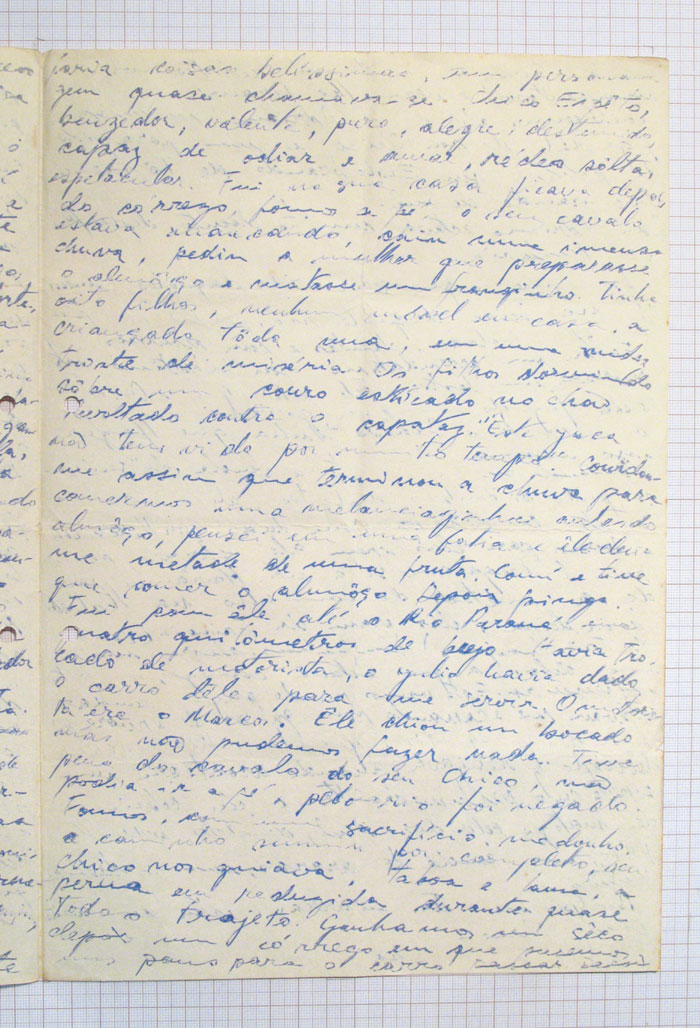 coisas, um persona
gem quase chamava-se Chico Preto,
benzedor, valente, puro, alegre, destemido,
capaz de odiar e amar, rédea sôlta,
espetacular. Fui na sua casa ficava depois
do corrego, fomos a pé, o seu cavalo
estava mancando, caiu uma imensa
chuva, pediu a mulher que preparasse
o almôço e matasse um franguinho. Tinha
oito filhos, nenhum móvel em casa, a
criançada tôda nua, em uma nudez
triste de miséria. Os filhos dormindo
sôbre um couro esticado no chão
revoltado contra o capataz. "Esta vaca
não tem vida por muito tempo. Convidou-
me assim que terminou a chuva para
comermos uma melanciazinha antes do
almôço, pensei em uma fatia e êle deu-
me metade de uma fruta. Comi e tive
que comer o almôço depois pinga.
Fui com êle até o Rio Paraná
quatro quilômetros de brejo. Havia tro-
cado de motorista, o havia dado
o carro dêle para me servir. O
ta era o Marcos. Êle chiou um bocado
mas não pudemos fazer nada. Tive
pena do cavalo do seu Chico, não
podia ir a pé, o pedo foi negado.
Fomos, com um sacrifício medonho,
a caminho sumiu por completo, seu
Chico nos guiava, e lama, a
perua em reduzida durante quase
todo o trajeto. Ganhamos um sêco
depois um córrego em que
uns paus para o carro